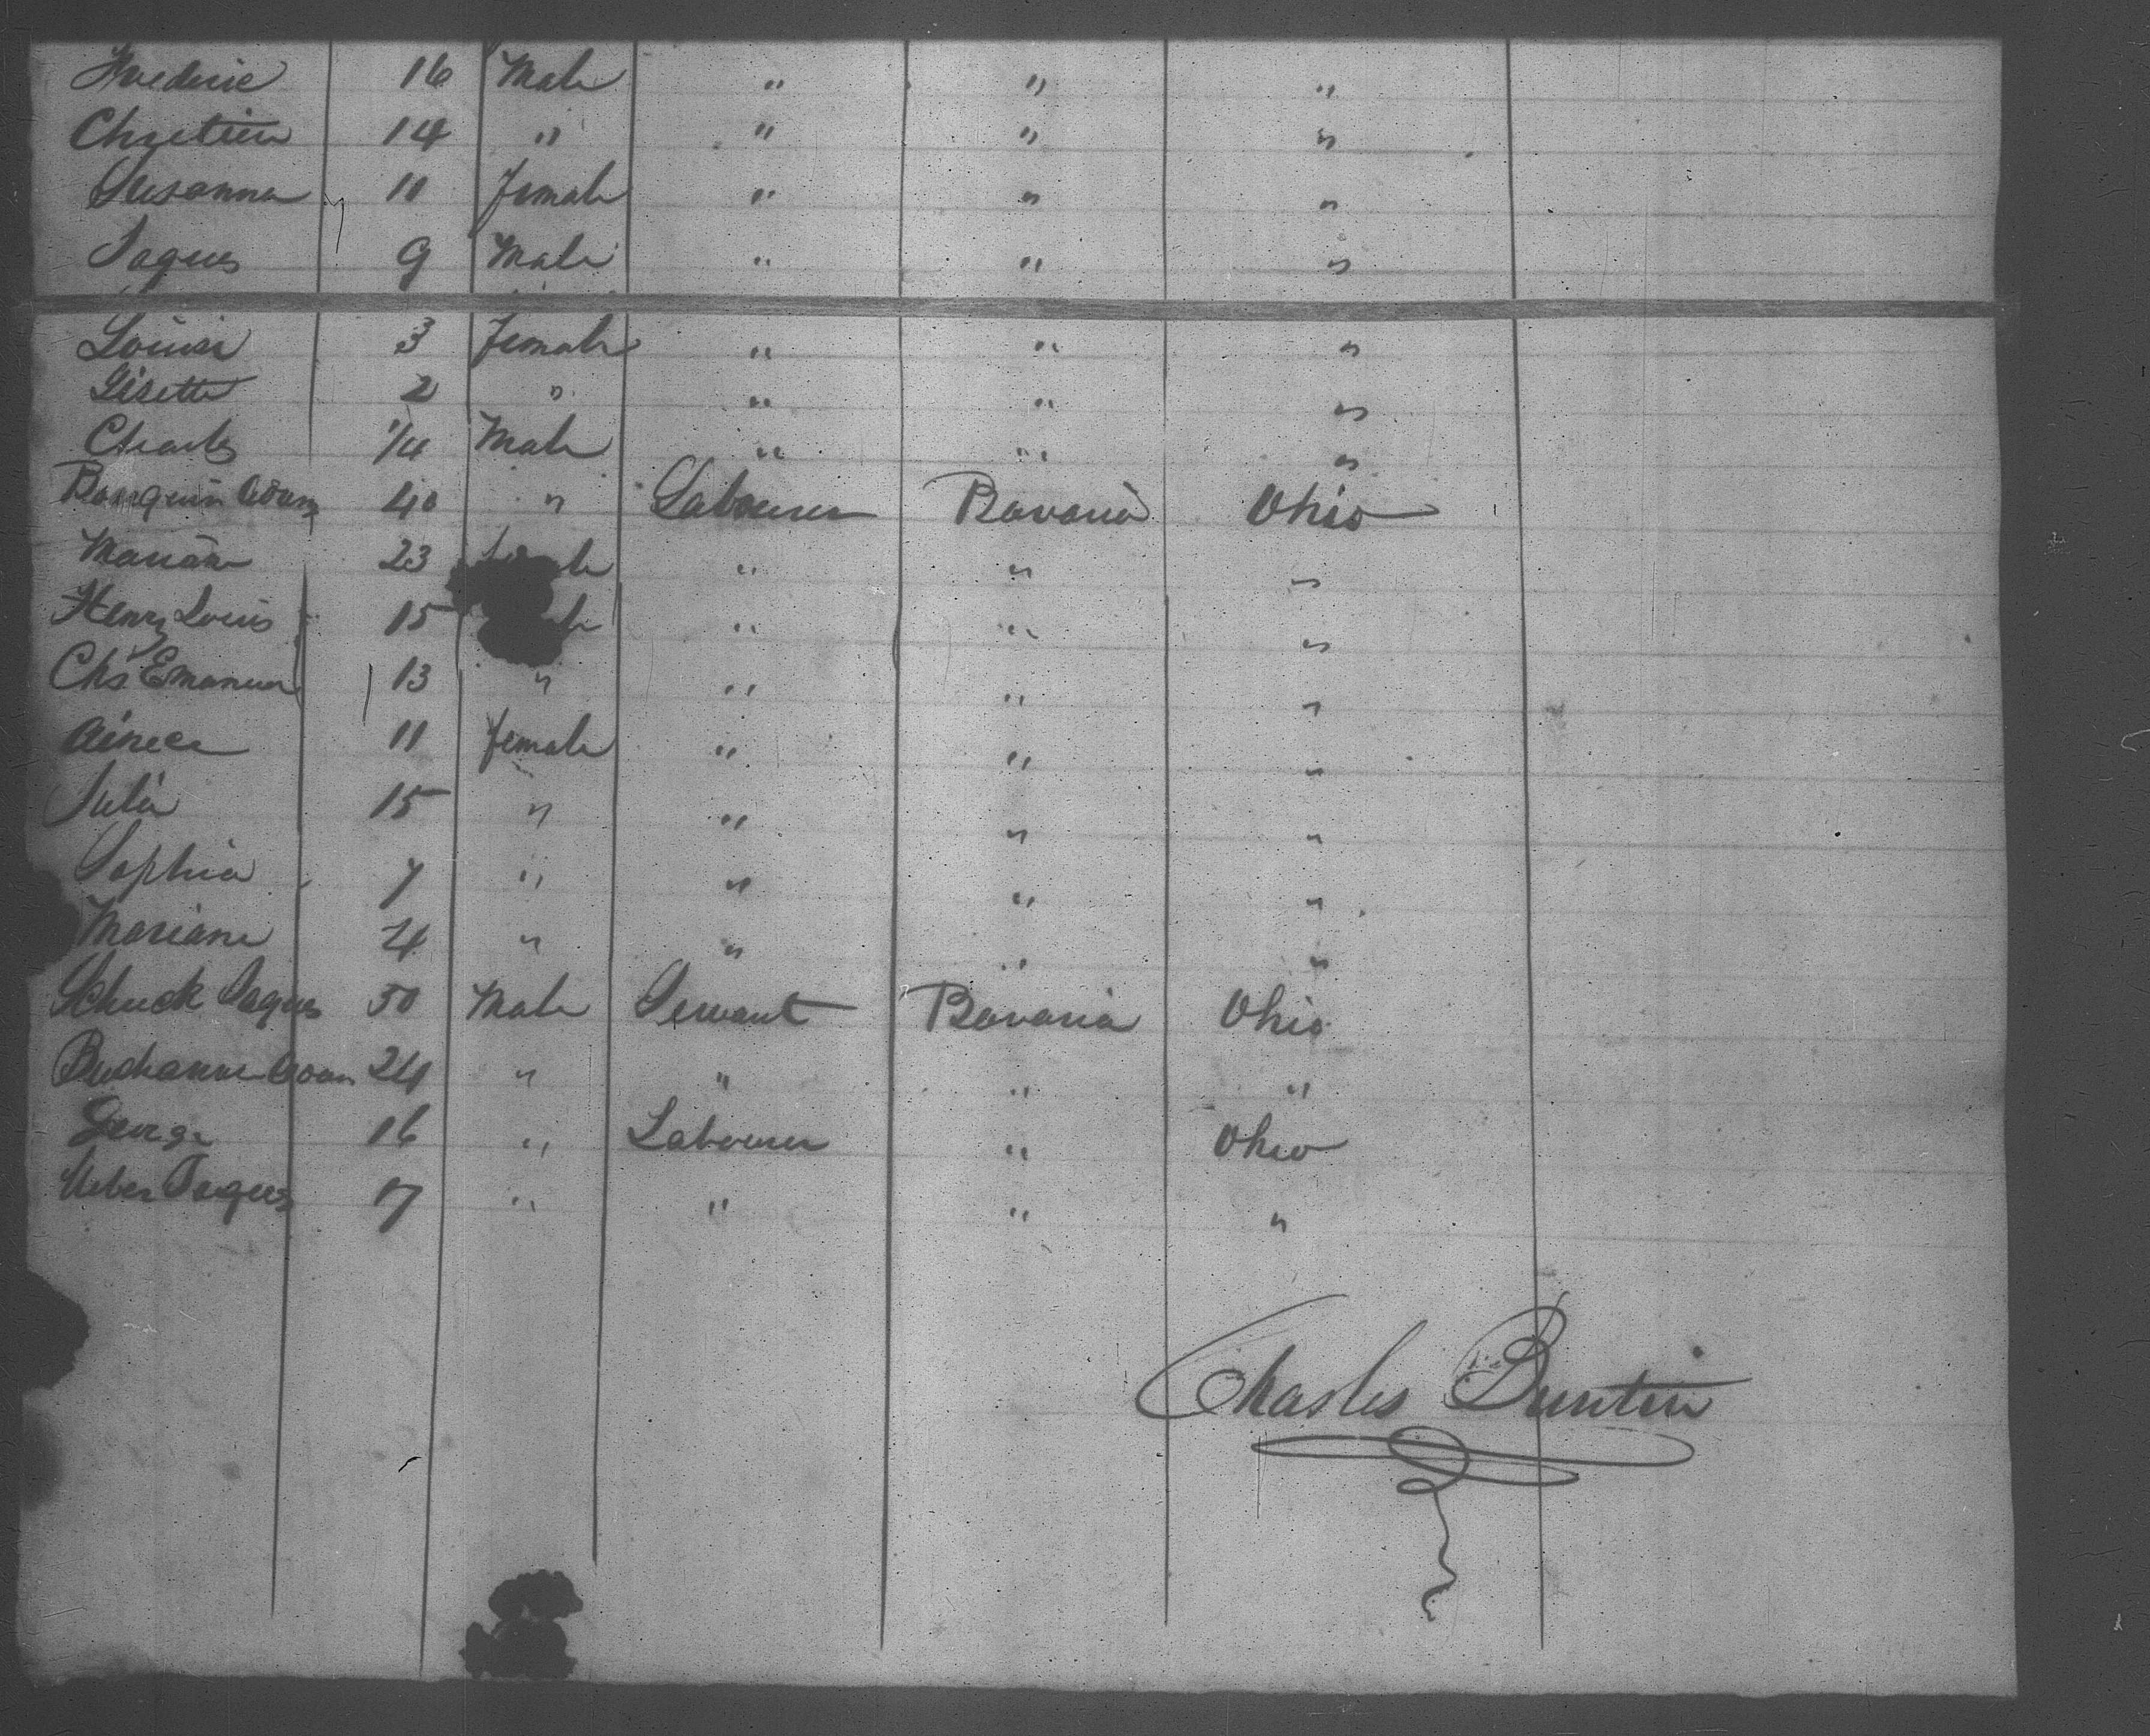 Frederic 16 Male " " "
Chretien 14 " " " "
Susanna 11 Female " " "
Jaques 9 Male " " "
Louise 3 Female " " "
Lisette 2 " " " "
Charles 1/4 Male " " "
Adam 40 " Labourer Bavaria Ohio
Mariane 23 " " "
Henry Louis 15 " " "
Chs Emanuel 13 " " " "
11 Female " " "
Julia 15 " " " "
Sophia 7 " " " "
Mariane 4 " " " "
Schuck Jaques 50 Male Servant Bavaria Ohio
Adam 24 " " " "
George 16 " Labourer " Ohio
Weber Jaques 17 " " " "
Charles Buntin